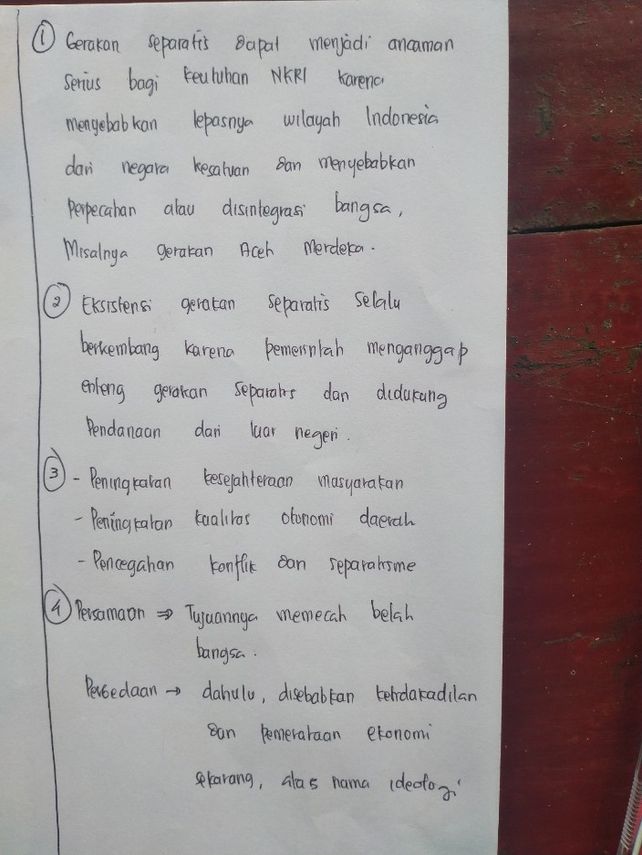 1 Gerakan separatis dapat menjadi ancaman
serius bagi keutuhan NKRI karena
menyebabkan lepasnya wilayah Indonesia
dari negara kesatuan dan menyebabkan
perpecahan atau disintegrasi bangsa,
Misalnya gerakan Aceh Merdeka.
2 Eksistensi gerakan separatis selalu
berkembang karena pemerintah menganggap
enteng gerakan separatis dan didukung
Pendanaan dari luar negeri.
3 - Peningkatan kesejahteraan masyarakan
- Peningkatan kualitas otonomi daerah
- Pencegahan konflik dan separatisme
4 Persamaan ⇒ Tujuannya memecah belah
bangsa.
Perbedaan → dahulu, disebabkan ketidakadilan
dan pemerataan ekonomi
sekarang, atas nama ideologi